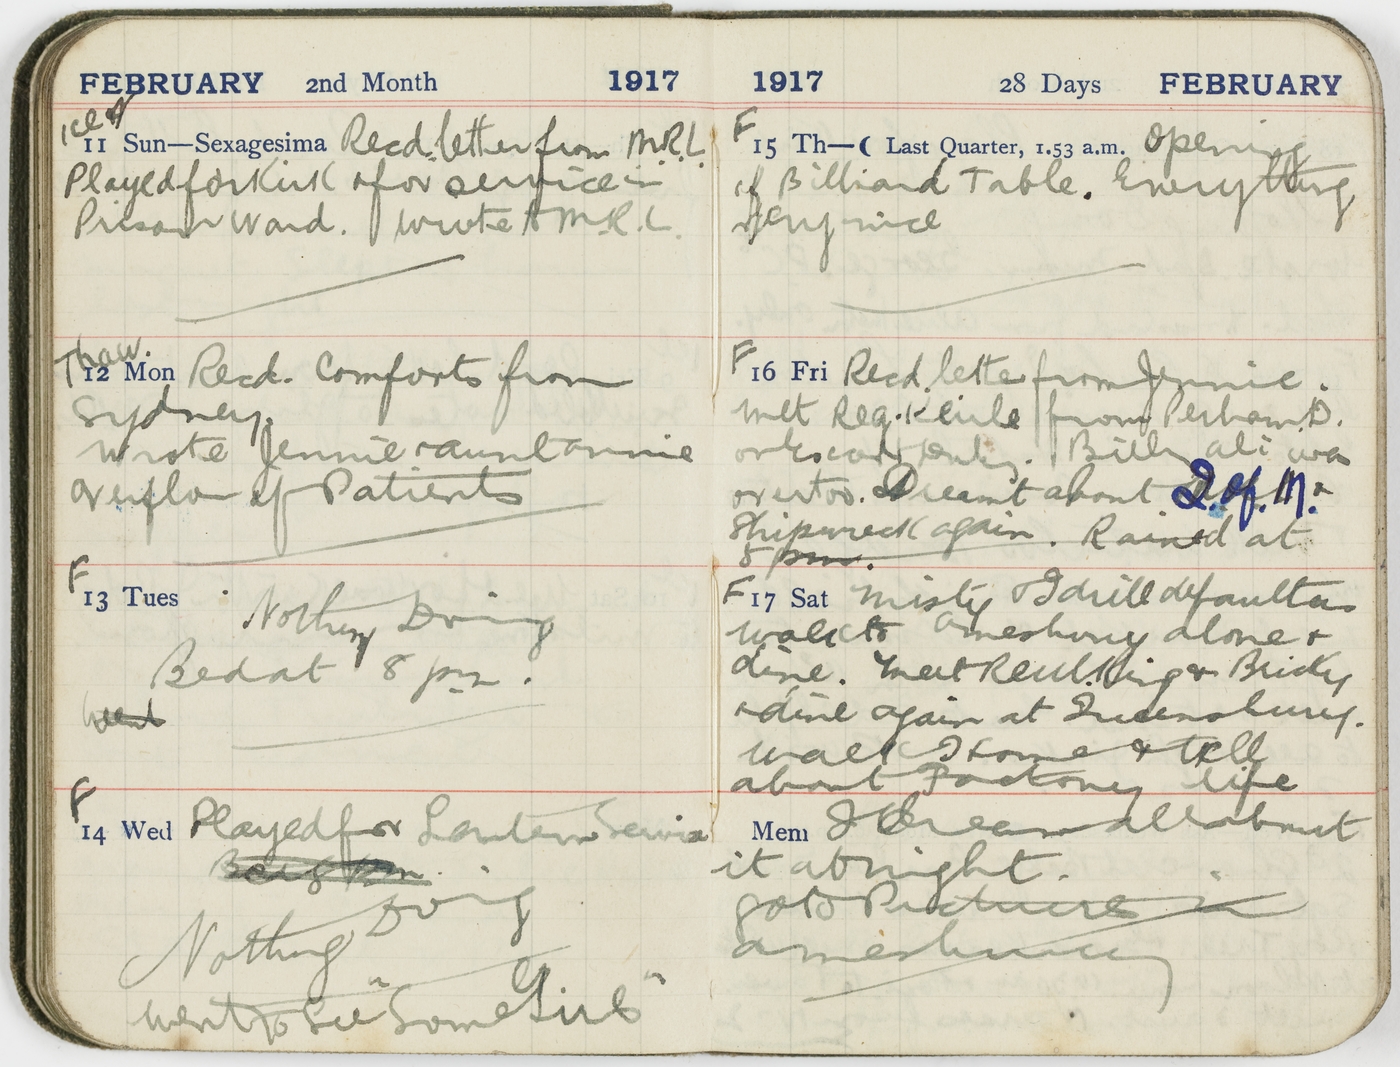 FEBRUARY 2nd Month 1917
Iced
11 Sun—Sexagesima Recd. letter from M.R.L.
Played for Kirk & for service in
Prison Ward. Wrote to M.R.L.
Thaw.
12 Mon Recd. Comforts from
Sydney.
Wrote Jennie & aunt annie
Overflow of Patients
F
13 Tues Nothing Doing
Bed at 8 pm.
went
F
14 Wed Played for Lantern Service
Nothing Doing
went to see "Some Girls"
1917 28 Days FEBRUARY
F
15 Th—☾ Last Quarter, 1.53 a.m. Opening
of Billiard Table. Everything
very nice
F
16 Fri Recd. letter from Jennie.
met Reg. from Perham D.
on Escort Duty. Billy was
over too. Dreamt about Q. of. M. &
Shipwreck again. Rained at
8 pm.
F
17 Sat Misty & I drill defaulters
walk to Amesbury alone &
dine. Meet King & Bricky
& dine again at Queensbury.
walk Home & tell
about Factory life
Mem I Dream all about
it at night.
go to Pictures in
amesbury